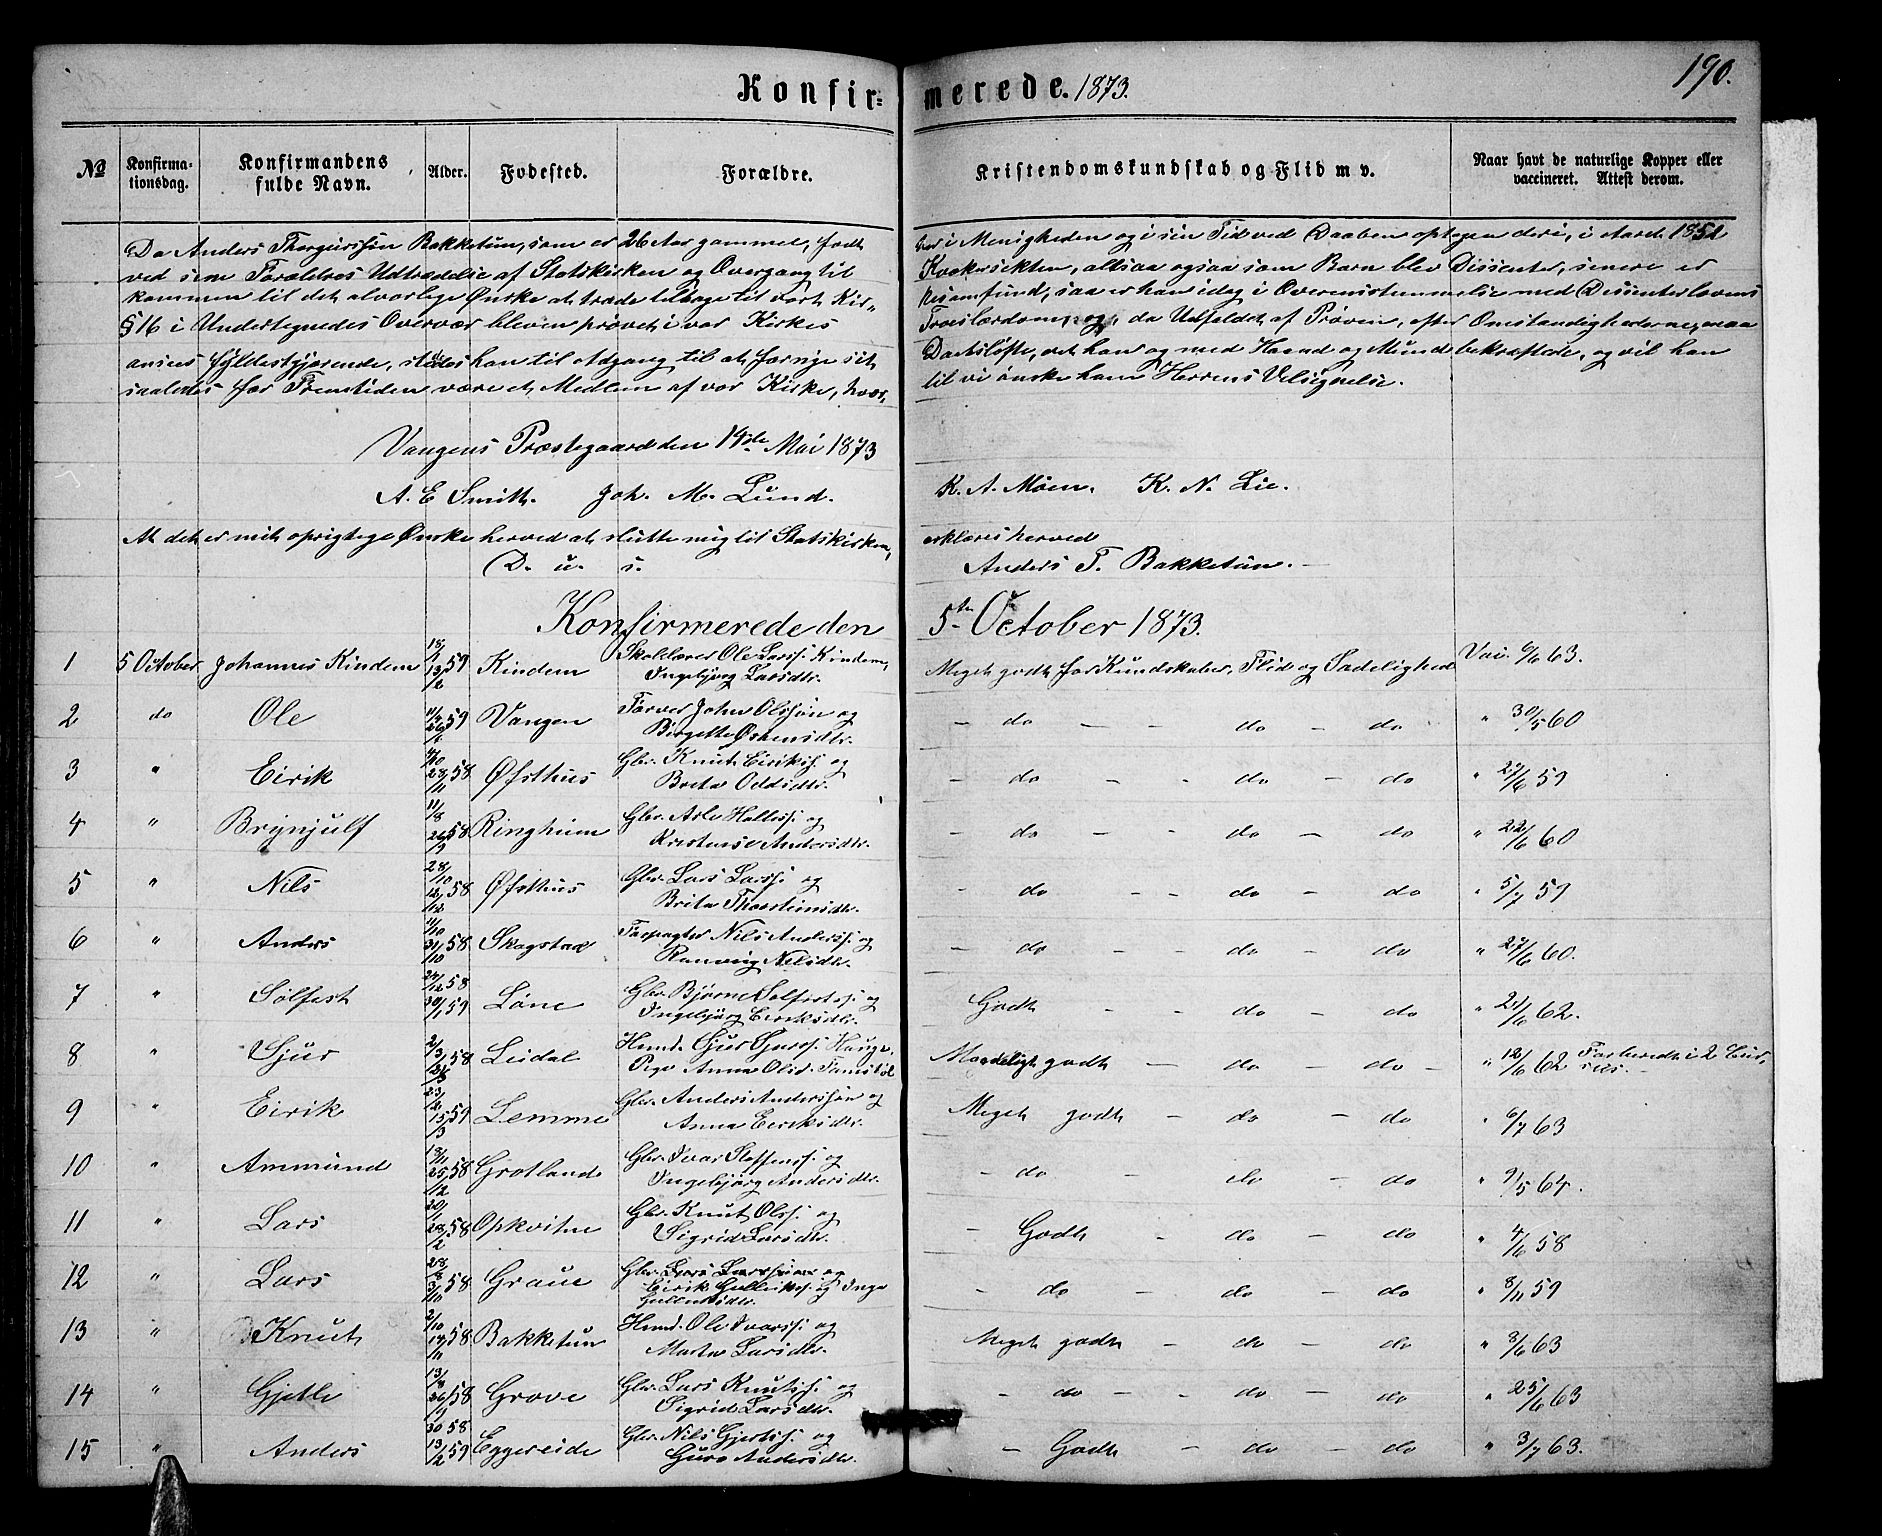 Konfir= merede. 1873.
190.
No Konfirma- tionsdag. Konfirmandens fulde Navn. Alder. Fødested. Forældre. Kristendomskundskab og Flid m v. Naar havt de naturlige Kopper eller vaccineret. Attest derom.
Da Anders Thorgiersøn Bakketun, som er 26 Aar gammel, født her i Menigheden og i sin Tid ved Daaben optagen deri, i Aaret 1851
ved sine Forældres Udtrædelse af Statskirken og Overgang til Kvækersekten, altsaa ogsaa som Barn blev Dissenter, senere er
kommen til det alvorlige Ønske at træde tilbage til vort Kir- kesamfund, saa er han idag i Overensstemmelse med Dissenterlovens
§ 16 i Undertegnedes Overvær bleven prøvet i vor Kirkes Troeslærdom, og, da Udfaldet af Prøven, efter Omstændighederne, maa
ansees fyldestgjørende, stedes han til Adgang til at fornye sit Daabsløfte, det han og med Haand og Mund bekræftede, og vil han
saaledes for Fremtiden være et Medlem af vor Kirke, hvor- til vi ønske ham Herrens Velsignelse.
Vangens Præstegaard den 14de Mai 1873
A. E Smith. Joh. M. Lund. K. A. Möen. K. N. Lie.
At det er mit oprigtige Ønske herved at slutte mig til Statskirken, erklæres herved
D. u. s. Anders T. Bakketun.
Konfirmerede den 5te October 1873.
1 5 October Johannes Kindem 59 Kindem Skolelærer Ole Larss. Kindem, Ingebjørg Larsdtr. Meget godt for Kundskaber, Flid og Sædelighed Vac. 6/6 63.
2 do Ole 59 Vangen Farver John Olssøn og Birgitte do do do " 30/5 60
3 " Eirik 58 Øfsthus Gbr. Knut Eirikss. og Brita Oddsdtr. do do do " 27/6 59
4 " Brynjulf 11/8 58 Ringheim Gbr. Arle Halless. og Kristense Andersdtr. do do do " 22/6 60
5 " Nils 28/10 12/12 58 Øfsthus Gbr. Lars Larss. og Brita Thorstinsdtr. do do do " 5/7 59
6 " Anders 11/10 31/10 58 Skogstad Forpagter Nils Anderss. og Ranveig Nilsdtr. do do do " 27/6 60.
7 " Solfest 24/12 58 30/1 59 Løne Gbr. Bjørne Solfestss. og Ingebjørg Eiriksdtr. Godt do do " 21/6 62.
8 " Sjur 2/3 58 Leidal Husmd. Sjur Sjurss. Hauge, Pige Anna Olsd. Maadeligt godt do do " 12/6 62 Forberedt i 2 Cur- ses.
9 " Eirik 23/2 15/3 59 Lemme Gbr. Anders Anderssøn og Anna Eiriksdtr. Meget godt do do " 6/7 63
10 " Ammund 13/11 25/12 58 Grotland Gbr. Ivar Steffenss. og Ingebjørg Andersdtr. do do do " 9/5 64.
11 " Lars 20/1 28/2 58 Opkvitne Gbr. Knut Olss. og Sigrid Larsdtr. Godt do do " 4/6 58
12 " Lars 58 Graue Gbr. Eirik Gullikss. og Inga Gulleiksdtr. do do do " 8/11 59
13 " Knut 2/10 14/11 58 Bakketun Husmd. Ole Ivarss. og Marta Larsdtr. Meget godt do do " 3/6 63
14 " Gjetle 13/8 26/9 58 Grove Gbr. Lars Knutss. og Sigrid Larsdtr. do do do " 25/6 63
15 " Anders 30 58 13/2 59 Eggereide Gbr. Nils Gjertss. og Guro Andersdtr. Godt do do " 3/7 63.